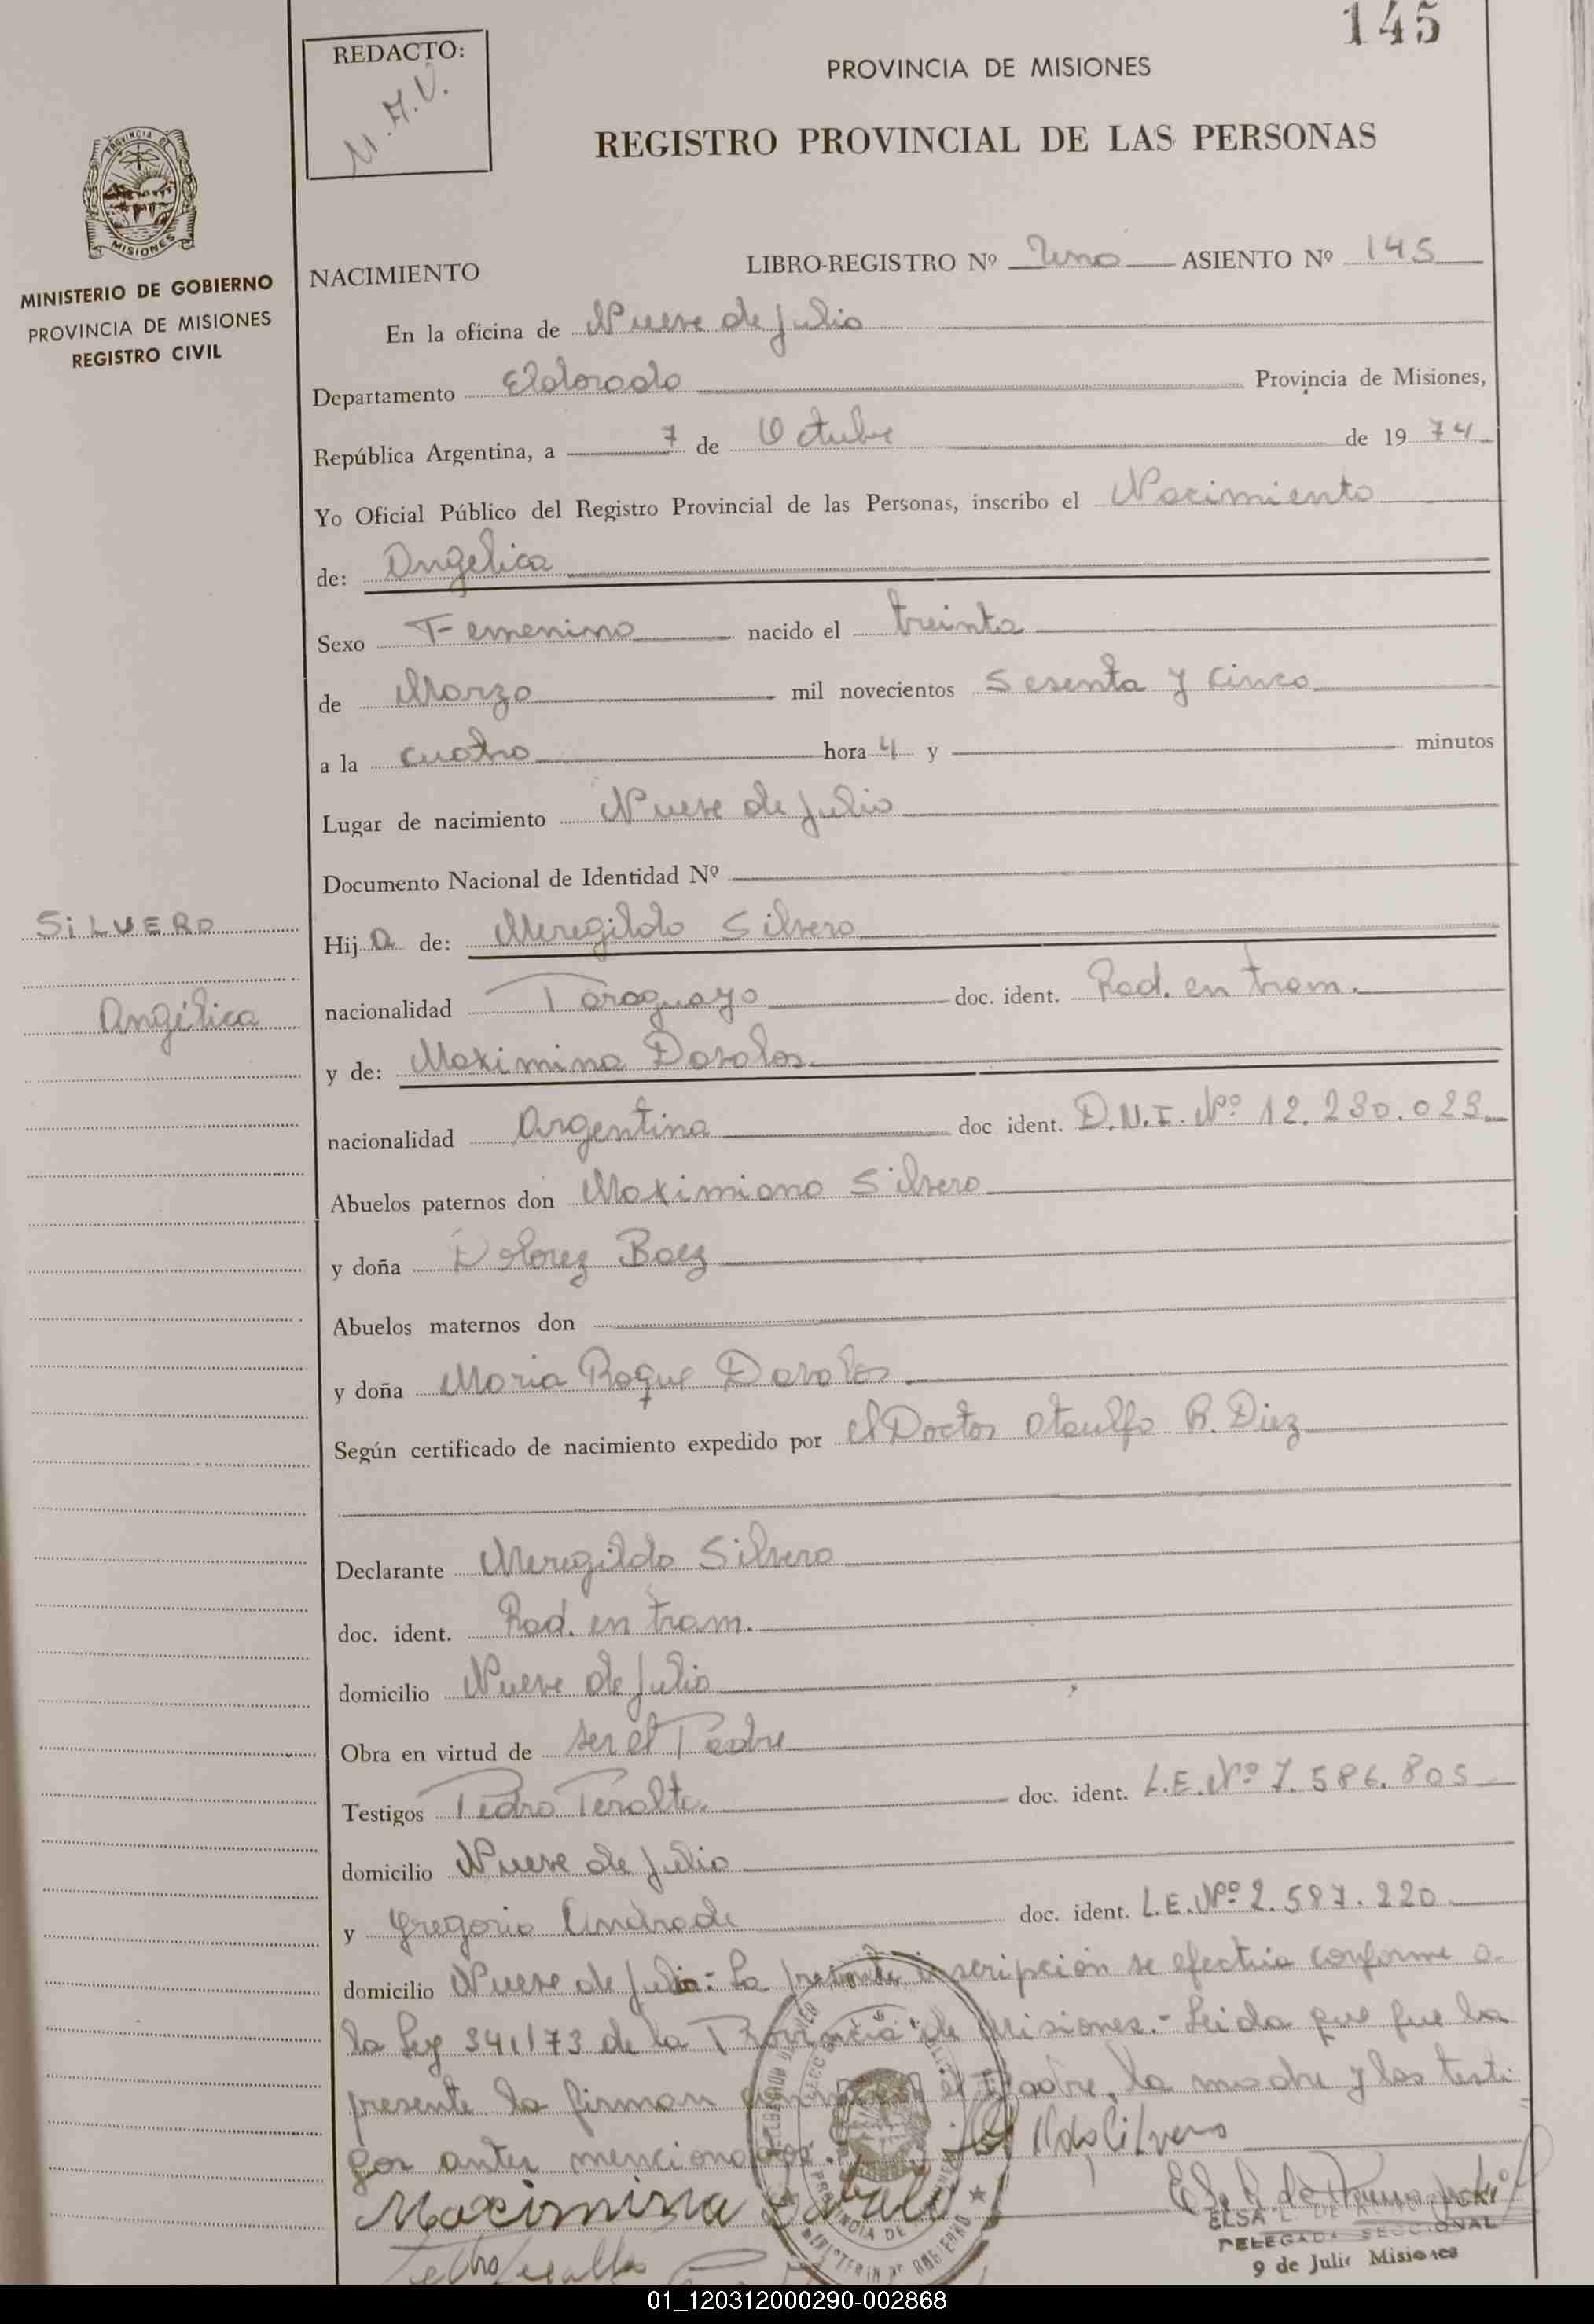 145
REDACTO:
M.A.V.
PROVINCIA DE MISIONES
REGISTRO PROVINCIAL DE LAS PERSONAS
PROVINCIA DE
MISIONES
MINISTERIO DE GOBIERNO
PROVINCIA DE MISIONES
REGISTRO CIVIL
NACIMIENTO LIBRO-REGISTRO Nº Uno ASIENTO Nº 145
En la oficina de Nueve de Julio
Departamento Eldorado Provincia de Misiones,
República Argentina, a 7 de Octubre de 19 74
Yo Oficial Público del Registro Provincial de las Personas, inscribo el Nacimiento
de: Angelica
Sexo Femenino nacido el treinta
de Marzo mil novecientos Sesenta y Cinco
a la cuatro hora 4 y minutos
Lugar de nacimiento Nueve de Julio
Documento Nacional de Identidad Nº
SILVERO
Angélica
Hija de: Meregildo Silvero
nacionalidad Paraguayo doc. ident. Rad. en tram.
y de: Maximina Davalos
nacionalidad Argentina doc ident. D.N.I. Nº 12.230.023
Abuelos paternos don Maximiano Silvero
y doña Dolorez Baez
Abuelos maternos don
y doña Maria Roque Davalos
Según certificado de nacimiento expedido por el Doctor Ataulfo R. Diez
Declarante Meregildo Silvero
doc. ident. Rad. en tram.
domicilio Nueve de Julio
Obra en virtud de ser el Padre
Testigos Pedro Peralta doc. ident. L.E. Nº 7.586.805
domicilio Nueve de Julio
y Gregorio Andrade doc. ident. L.E. Nº 2.587.220
domicilio Nueve de Julio.- La presente inscripción se efectúa conforme a
la Ley 341/73 de la Provincia de Misiones.- Leida que fue la
presente la firman el Padre, la madre y los testi
gos antes mencionados.
Silvero
Maximina Davalo
ELSA
DELEGADA SECCIONAL
9 de Julio Misiones
01_120312000290-002868